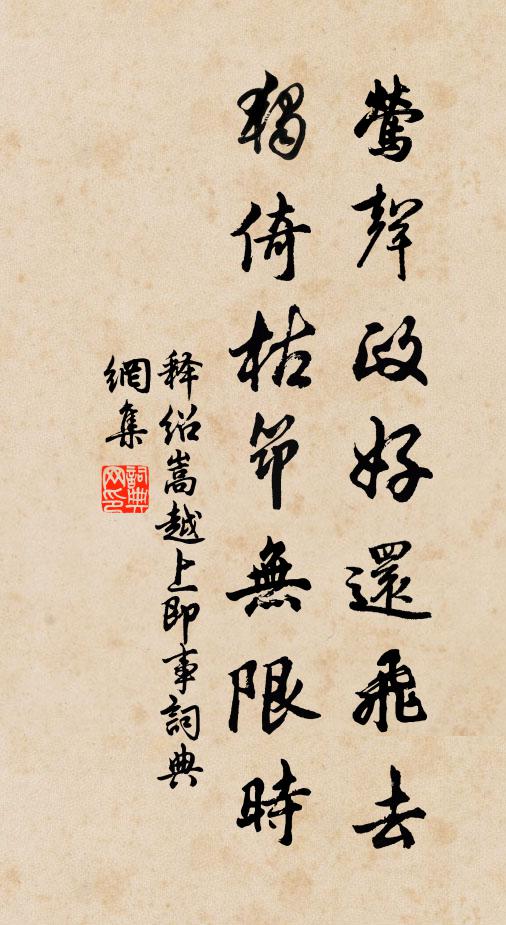 鶯聲政好還飛去
獨倚枯筇無限時
释紹嵩越上即事詞典
網集
詞典網印